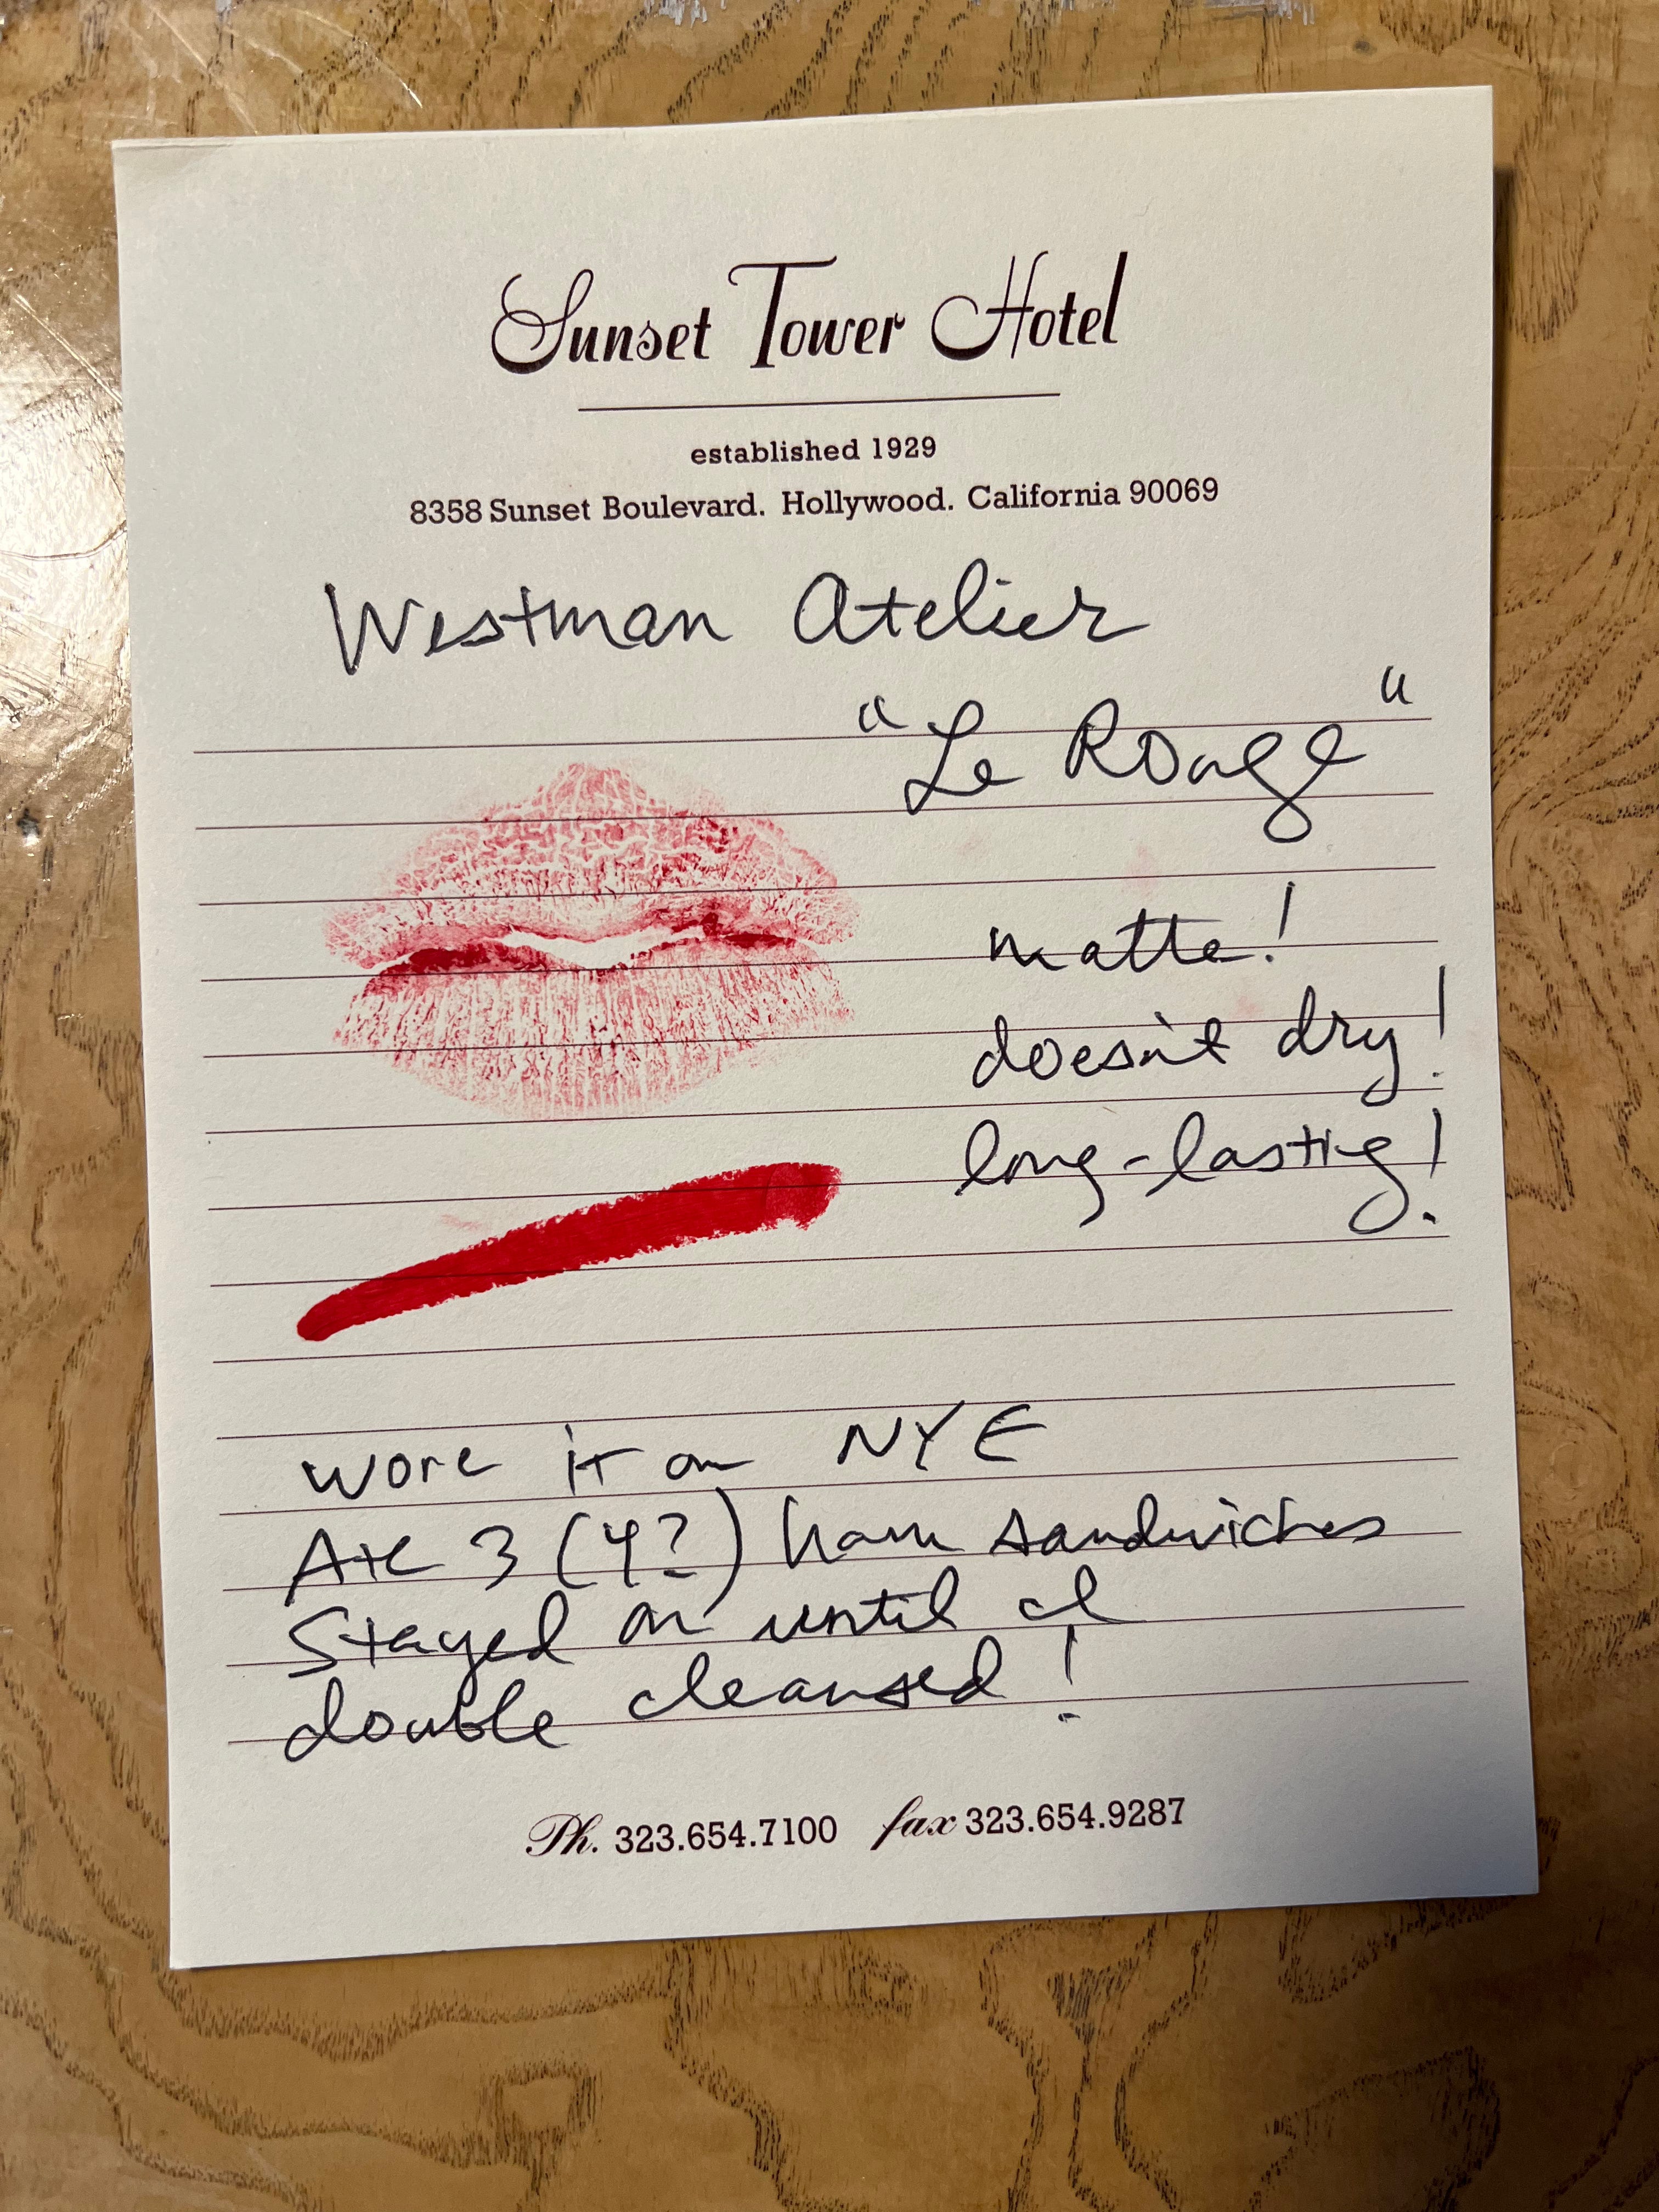 Sunset Tower Hotel
established 1929
8358 Sunset Boulevard. Hollywood. California 90069
Westman Atelier
"Le Rouge"
matte!
doesn't dry!
long-lasting!
wore it on NYE
Ate 3 (4?) ham sandwiches
Stayed on until I
double cleansed!
Ph. 323.654.7100 fax 323.654.9287